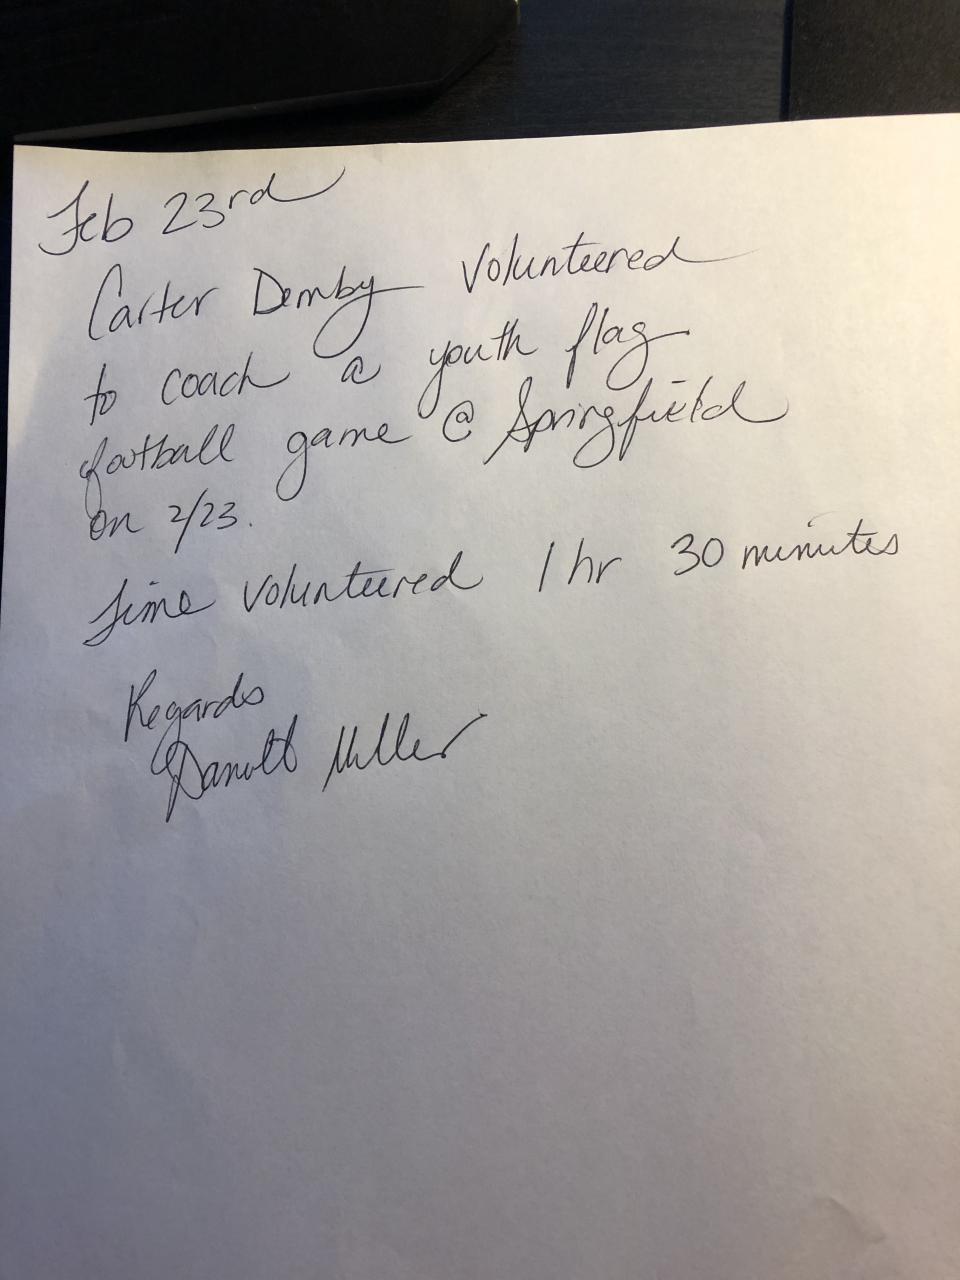 Feb 23rd
Carter Demby volunteered
to coach a youth flag
football game @ Springfield
on 2/23.
Time volunteered 1 hr 30 minutes
Regards
Miller